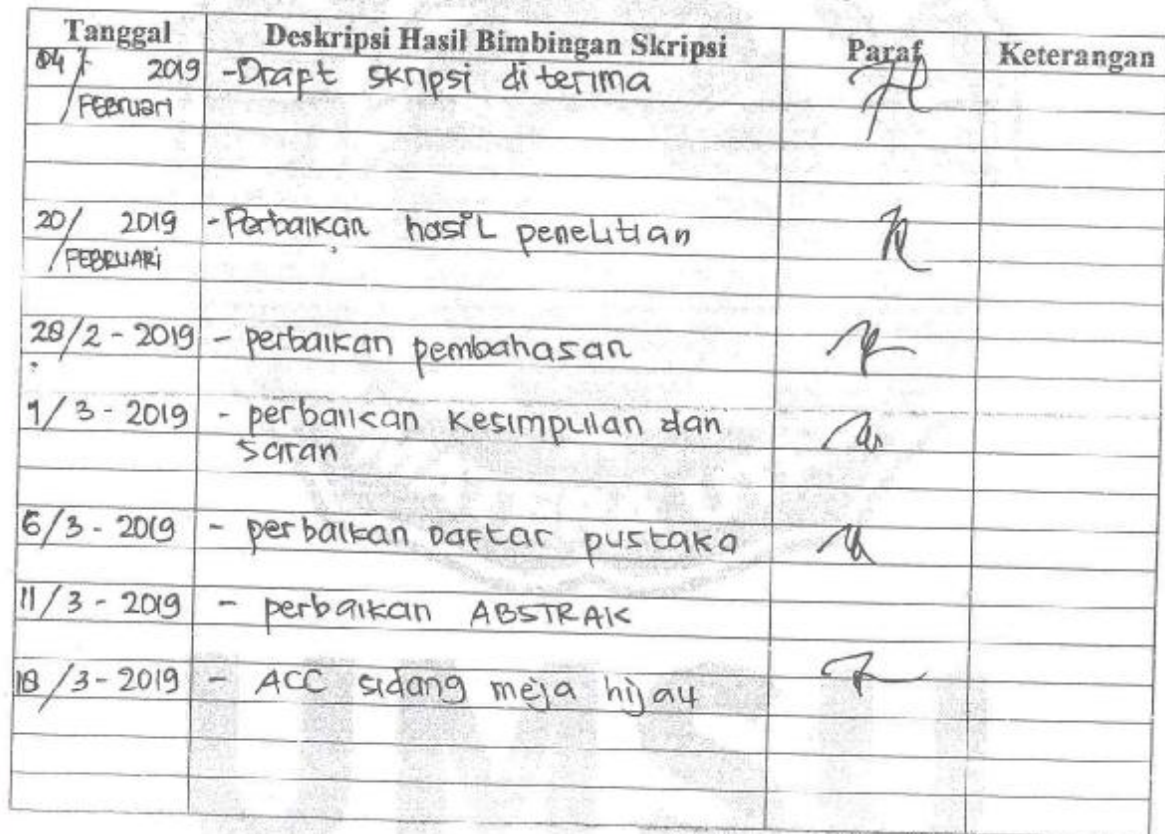 Tanggal Deskripsi Hasil Bimbingan Skripsi Paraf Keterangan
04/ 2019 -Drapt skripsi diterima
/Februari
20/ 2019 -Perbaikan hasil penelitian
/FEBRUARi
28/2 - 2019 - perbaikan pembahasan
1/3 - 2019 - perbaikan kesimpulan dan
saran
6/3 - 2019 - perbaikan Daftar pustaka
11/3 - 2019 - perbaikan ABSTRAK
18/3 - 2019 - ACC sidang meja hijau